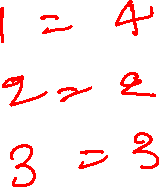 1 = 4
2 = 2
3 = 3